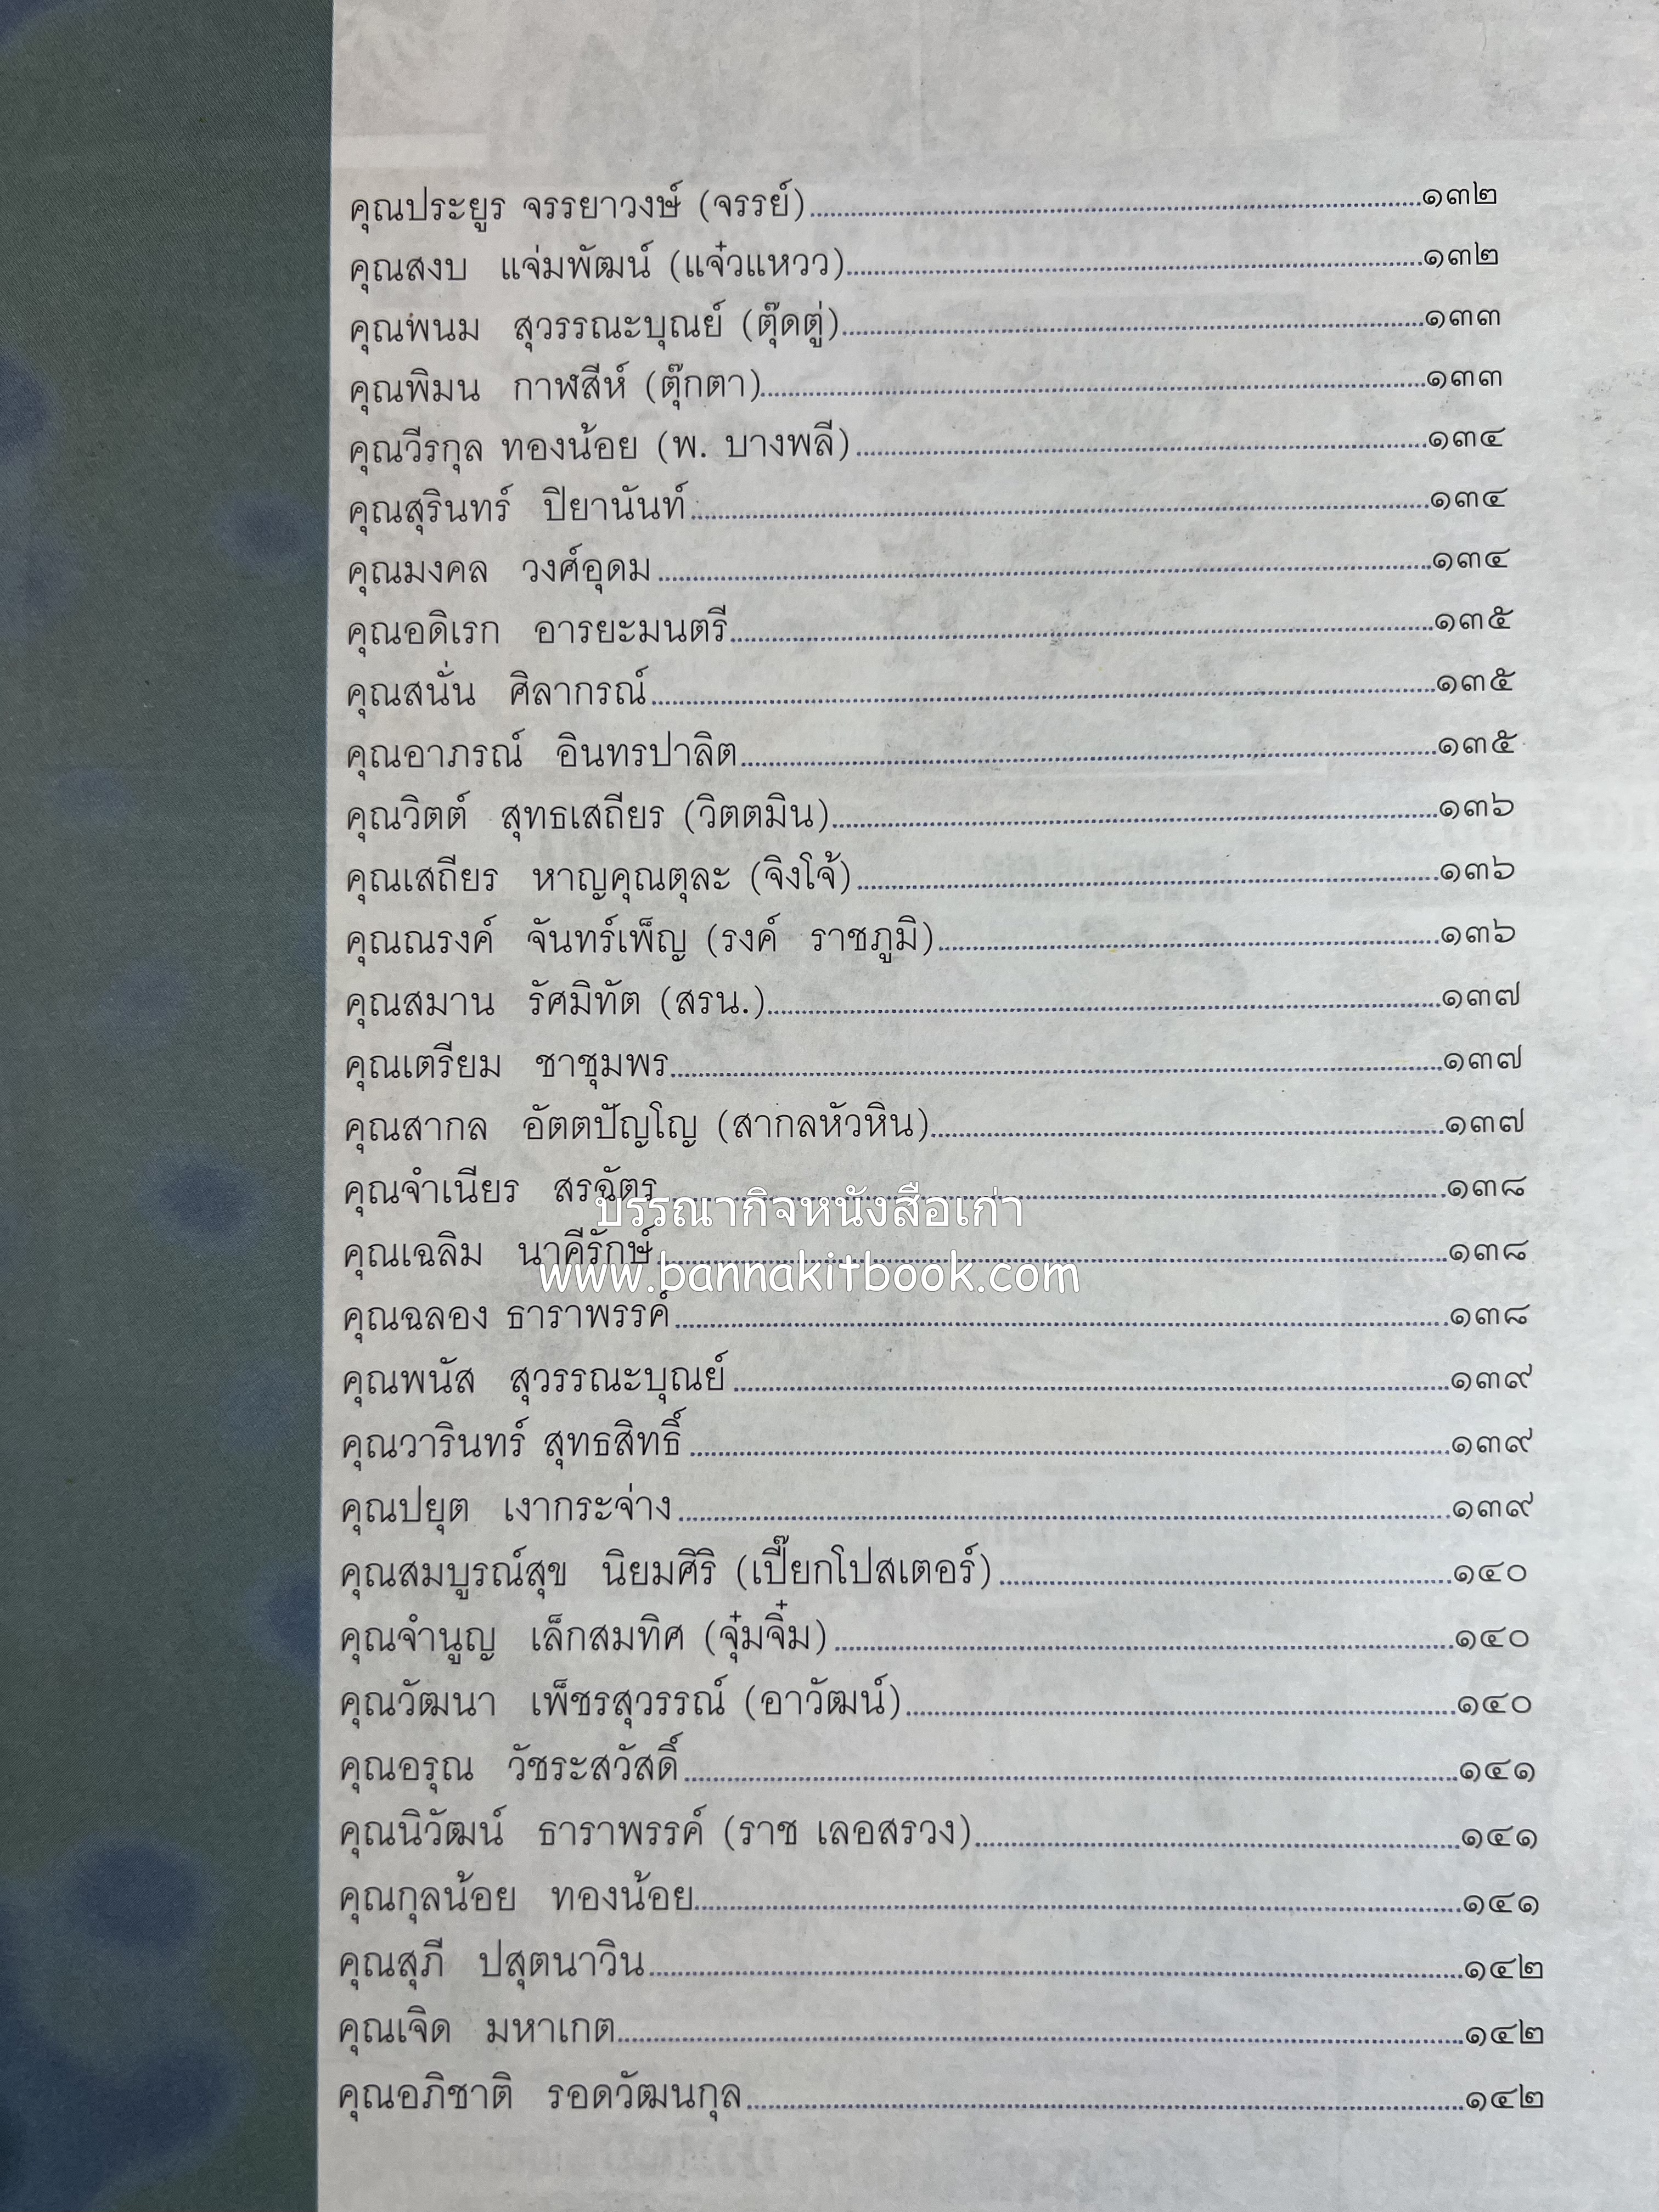 คุณประยูร จรรยาวงษ์ (จรรย์)....................๑๓๒
คุณสงบ แจ่มพัฒน์ (แจ๋วแหวว)....................๑๓๒
คุณพนม สุวรรณะบุณย์ (ตุ๊ดตู่)....................๑๓๓
คุณพิมน กาฬสีห์ (ตุ๊กตา)....................๑๓๓
คุณวีรกุล ทองน้อย (พ. บางพลี)....................๑๓๔
คุณสุรินทร์ ปิยานันท์....................๑๓๔
คุณมงคล วงศ์อุดม....................๑๓๔
คุณอดิเรก อารยะมนตรี....................๑๓๕
คุณสนั่น ศิลากรณ์....................๑๓๕
คุณอาภรณ์ อินทรปาลิต....................๑๓๕
คุณวิตต์ สุทธเสถียร (วิตตมิน)....................๑๓๖
คุณเสถียร หาญคุณตุละ (จิงโจ้)....................๑๓๖
คุณณรงค์ จันทร์เพ็ญ (รงค์ ราชภูมิ)....................๑๓๖
คุณสมาน รัศมิทัต (สรน.)....................๑๓๗
คุณเตรียม ชาชุมพร....................๑๓๗
คุณสากล อัตตปัญโญ (สากลหัวหิน)....................๑๓๗
คุณจำเนียร สรฉัตร....................๑๓๘
บรรณากิจหนังสือเก่า
คุณเฉลิม นาคีรักษ์....................๑๓๘
www.bannakitbook.com
คุณฉลอง ธาราพรรค์....................๑๓๘
คุณพนัส สุวรรณะบุณย์....................๑๓๙
คุณวารินทร์ สุทธสิทธิ์....................๑๓๙
คุณปยุต เงากระจ่าง....................๑๓๙
คุณสมบูรณ์สุข นิยมศิริ (เปี๊ยกโปสเตอร์)....................๑๔๐
คุณจำนูญ เล็กสมทิศ (จุ๋มจิ๋ม)....................๑๔๐
คุณวัฒนา เพ็ชรสุวรรณ์ (อาวัฒน์)....................๑๔๐
คุณอรุณ วัชระสวัสดิ์....................๑๔๑
คุณนิวัฒน์ ธาราพรรค์ (ราช เลอสรวง)....................๑๔๑
คุณกุลน้อย ทองน้อย....................๑๔๑
คุณสุภี ปสุตนาวิน....................๑๔๒
คุณเจิด มหาเกต....................๑๔๒
คุณอภิชาติ รอดวัฒนกุล....................๑๔๒